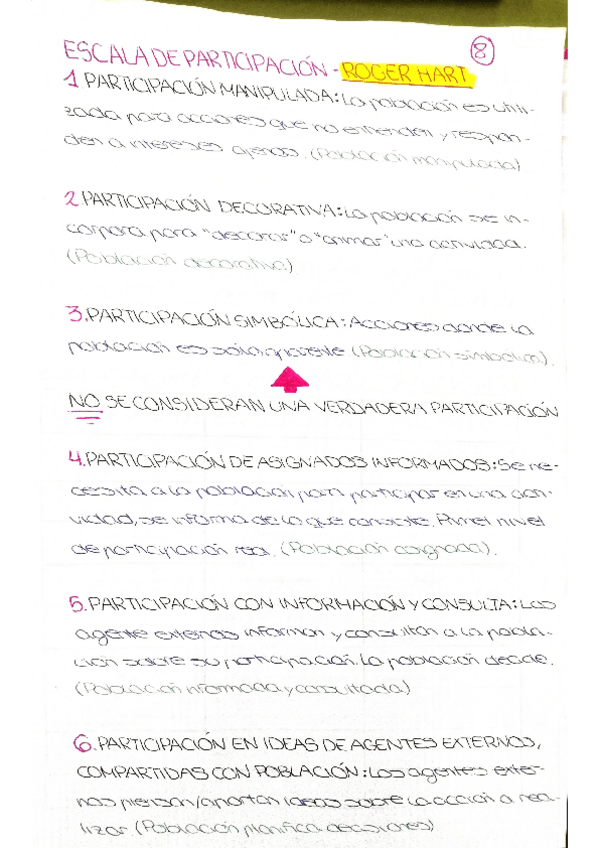 8
ESCALA DE PARTICIPACIÓN - ROGER HART
1 PARTICIPACIÓN MANIPULADA: La población es utili-
zada para acciones que no entienden y respon-
den a intereses ajenos. (Población manipulada)
2 PARTICIPACIÓN DECORATIVA: La población se in-
corpora para "decorar" o "animar" una actividad.
(Población decorativa)
3. PARTICIPACIÓN SIMBÓLICA: Acciones donde la
población es solo aparente (Población simbólica).
NO SE CONSIDERAN UNA VERDADERA PARTICIPACIÓN
4. PARTICIPACIÓN DE ASIGNADOS INFORMADOS: Se ne-
cesita a la población para participar en una acti-
vidad, se informa de lo que consiste. Primer nivel
de participación real. (Población asignada).
5. PARTICIPACIÓN CON INFORMACIÓN Y CONSULTA: Los
agente externos informan y consultan a la pobla-
ción sobre su participación. La población decide.
(Población informada y consultada)
6. PARTICIPACIÓN EN IDEAS DE AGENTES EXTERNOS,
COMPARTIDAS CON POBLACIÓN: Los agentes exter-
nos piensan/aportan ideas sobre la acción a rea-
lizar. (Población planifica decisiones)